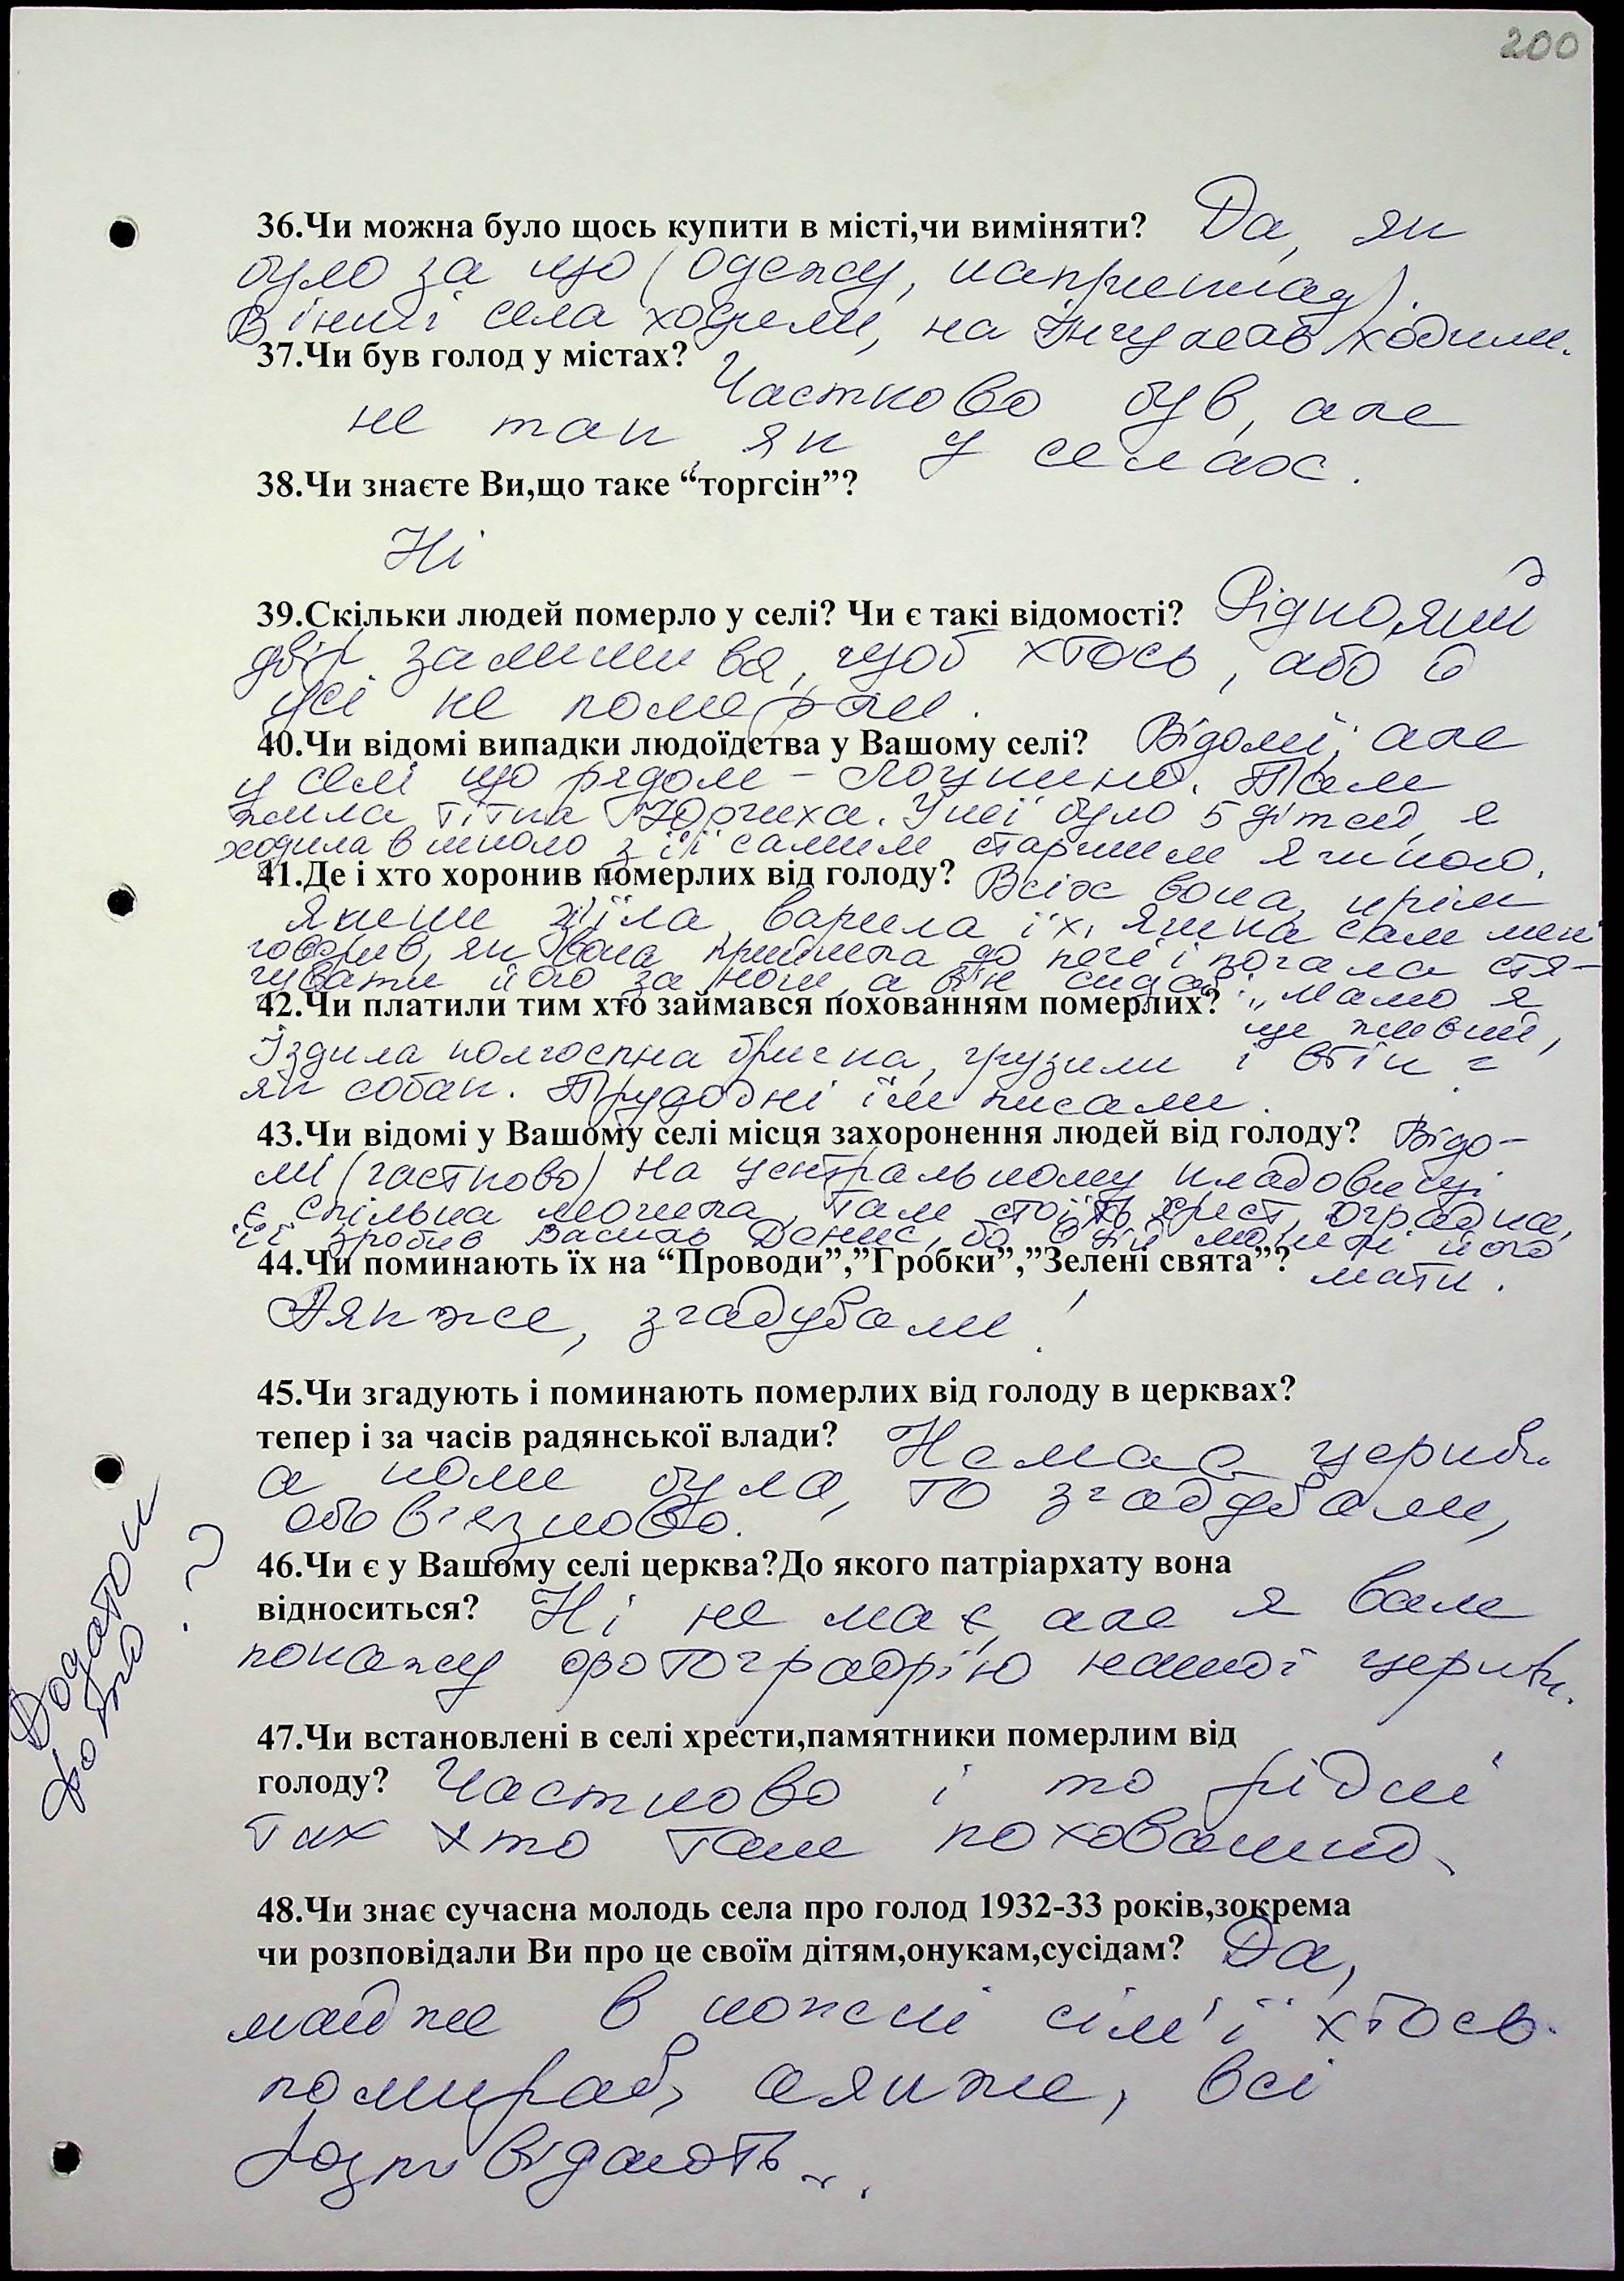 200
36.Чи можна було щось купити в місті,чи виміняти? Да, як
було за що (одежу, наприклад).
В інші села ходили, на Інгулець ходили.
37.Чи був голод у містах? Частково був, але
не так, як у селах.
38.Чи знаєте Ви,що таке “торгсін”?
Ні
39.Скільки людей померло у селі? Чи є такі відомості? Рідко, який
двір залишився, щоб хтось, або й
усі не померли.
40.Чи відомі випадки людоїдства у Вашому селі? Відомі, але
у селі що рядом – . Там
жила тітка Юрчиха. У неї було 5 дітей, я
ходила в школу з її самим старшим Яшкою.
41.Де і хто хоронив померлих від голоду? Всіх вона, крім
Яшки з'їла, варила їх, Яшка сам мені
говорив, як вона прийшла до печі і почала стя-
гувати його за ноги, а він сидав: „Мамо я
42.Чи платили тим хто займався похованням померлих? ще живий,
Їздила колгоспна бричка, грузили і втік
як собак. Трудодні їм писали.
43.Чи відомі у Вашому селі місця захоронення людей від голоду? Відо-
мі (частково) На центральному кладовищі
є спільна могила, там стоїть хрест, оградка,
її зробив Василь Денис, бо в тій могилі його
44.Чи поминають їх на “Проводи”,”Гробки”,”Зелені свята”? мати.
Аякже, згадували!
45.Чи згадують і поминають померлих від голоду в церквах?
тепер і за часів радянської влади? Немає церкви.
а коли була, то згадували,
обов'язково.
46.Чи є у Вашому селі церква?До якого патріархату вона
відноситься? Ні не має, але я вам
покажу фотографію нашої церкви.
Додаток
фото ?
47.Чи встановлені в селі хрести,памятники померлим від
голоду? Частково і то рідні
тих хто там похований.
48.Чи знає сучасна молодь села про голод 1932-33 років,зокрема
чи розповідали Ви про це своїм дітям,онукам,сусідам? Да,
майже в кожній сім'ї хтось
помирав, аякже, всі
розповідають...